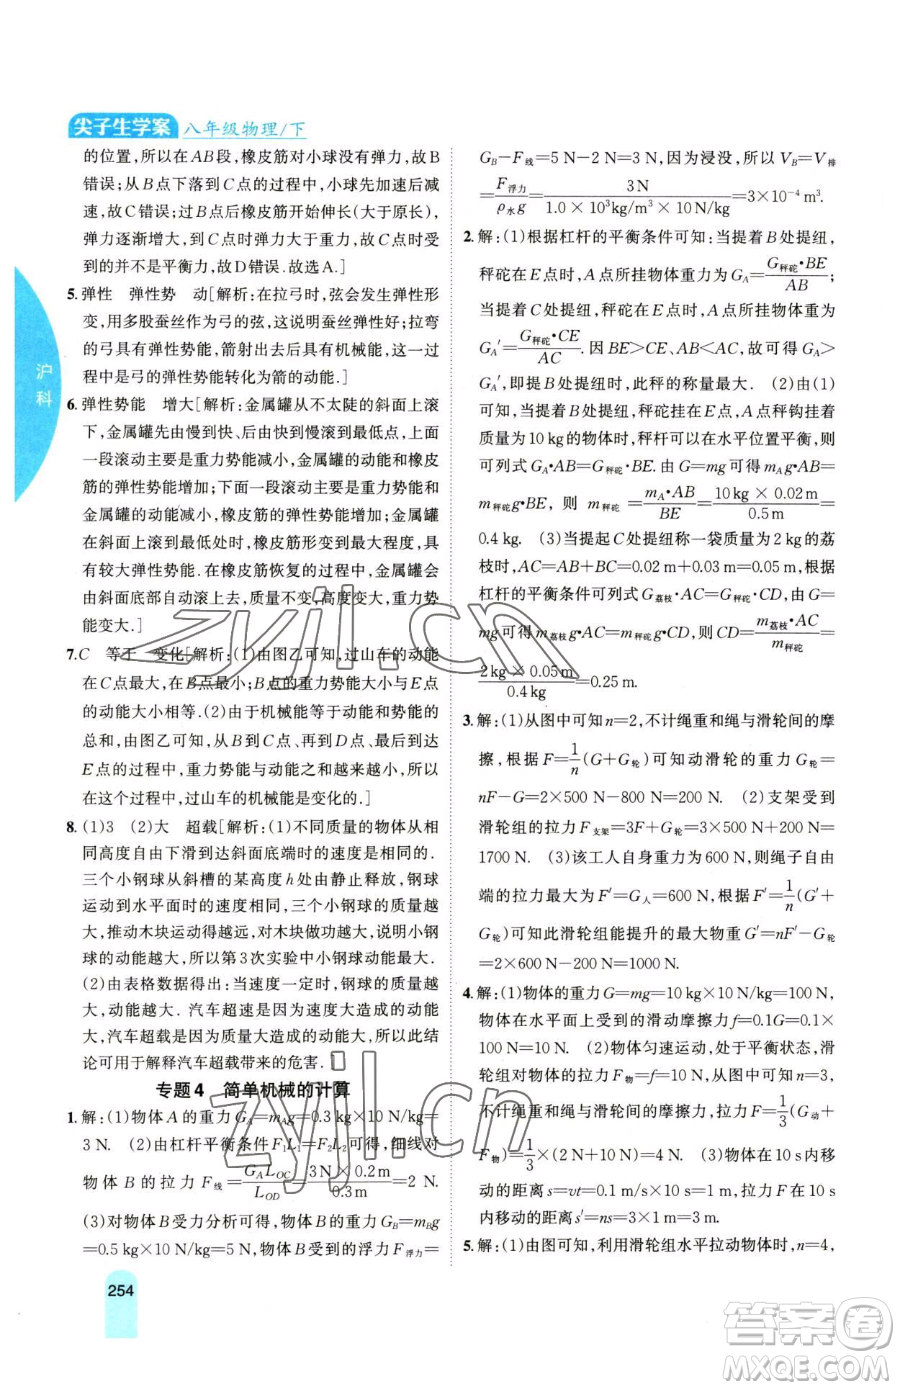 尖子生学案 八年级物理/下
沪科
的位置,所以在AB段,橡皮筋对小球没有弹力,故B
错误;从B点下落到C点的过程中,小球先加速后减
速,故C错误;过B点后橡皮筋开始伸长(大于原长),
弹力逐渐增大,到C点时弹力大于重力,故此时小球受
到的并不是平衡力,故D错误.故选A.]
5.弹性 弹性势 动[解析:在拉弓时,弦会发生弹性形
变,用多股蚕丝作弓的弦,这里利用了蚕丝的弹性;拉弯
的弓具有弹性势能,箭射出去后具有机械能,所以射箭
的过程是弓的弹性势能转化为箭的动能.]
6.弹性势能 增大[解析:金属罐从不太陡的斜面上滚
下,金属罐先由慢到快、后由快到慢滚到最低点,上面
一段滚动主要是重力势能减小,金属罐的动能和橡皮
筋的弹性势能增加;下面一段滚动主要是重力势能和
金属罐的动能减小,橡皮筋的弹性势能增加,金属罐
在斜面上滚到最低处时,动能为零,重力势能最小,橡
皮筋弹性势能最大.在橡皮筋恢复的过程中,金属罐
由斜面底部自动滚上去,质量不变,高度变大,重力势
能变大.]
7.C 等于 变化[解析:(1)由图乙可知,过山车的动能
在C点最大,在B点最小;B点的重力势能与E点时
的动能大小相等.(2)由于机械能等于动能和势能的
总和,由图乙可知,从B到C点、再到D点、最后到达
E点的过程中,重力势能与动能之和越来越小,所以
在这个过程中,过山车的机械能是变化的.]
8.(1)3 (2)大 超载[解析:(1)不同质量的物体从相
同高度自由下滑到达斜面底端时的速度是相同的.
三个小钢球从斜槽的某高度h处由静止释放,钢球
运动到水平面时的速度相同,三个小钢球的质量越
大,推动木块运动得越远,对木块做功越大,说明小钢
球的动能越大,所以第3次实验中小钢球动能最大.
(2)由表格数据得出:当速度一定时,钢球的质量越大,
动能越大.汽车超速是因为速度大造成的动能
大,汽车超载是因为质量大造成的动能大,所以此结
论可用于解释汽车超载带来的危害.]
专题4 简单机械的计算
1.解:(1)物体A的重力G_A=m_Ag=0.3 kg×10 N/kg=
3 N. (2)由杠杆平衡条件F₁L₁=F₂L₂可得,细线对
物体B的拉力F_线=G_AL_OC/L_OD=3 N×0.2 m/0.3 m=2 N.
(3)对物体B受力分析可得,物体B的重力G_B=m_Bg
=0.5 kg×10 N/kg=5 N,物体B受到的浮力F_浮力=
G_B−F_线=5 N−2 N=3 N,因为浸没,所以V_B=V_排
=F_浮力/ρ_水g=3 N/(1.0×10³kg/m³×10 N/kg)=3×10⁻⁴ m³.
2.解:(1)根据杠杆的平衡条件可知:当提着B处提纽,
秤砣在E点时,A点所挂物体重力为G_A=G_秤砣•BE/AB;
当提着C处提纽,秤砣在E点时,A点所挂物体重力为
G_A′=G_秤砣•CE/AC.因BE>CE、AB<AC,故可得G_A>
G_A′,所以当提起B处提纽时,此秤的称量最大. (2)由(1)
可知,当提着B处提纽,秤砣挂在E点,A点秤钩挂上
质量为10 kg的物体时,秤杆可以在水平位置平衡,则
可列式G_A•AB=G_秤砣•BE.由G=mg可得m_Ag•AB=
m_秤砣g•BE,则m_秤砣=m_A•AB/BE=10 kg×0.02 m/0.5 m=
0.4 kg. (3)当提起C处提纽称一袋质量为2 kg的荔
枝时,AC=AB+BC=0.02 m+0.03 m=0.05 m.根据
杠杆的平衡条件可列式G_荔枝•AC=G_秤砣•CD,由G=
mg可得m_荔枝g•AC=m_秤砣g•CD,则CD=m_荔枝•AC/m_秤砣=
2 kg×0.05 m/0.4 kg=0.25 m.
3.解:(1)从图中可知n=2,不计绳重和绳与滑轮间的摩
擦,根据F=1/n(G+G_轮)可知动滑轮的重力G_轮=
nF−G=2×500 N−800 N=200 N. (2)支架受到
滑轮组的拉力F_支架=3F+G_轮=3×500 N+200 N=
1700 N. (3)该工人自身重力为600 N,则绳子自由
端的拉力最大为F′=G_人=600 N,根据F′=1/n(G′+
G_轮)可知此滑轮组能提升的最大物重G′=nF′−G_轮
=2×600 N−200 N=1000 N.
4.解:(1)物体的重力G=mg=10 kg×10 N/kg=100 N,
物体在水平面上受到的滑动摩擦力f=0.1G=0.1×
100 N=10 N. (2)物体匀速运动,处于平衡状态,滑轮
组对物体的拉力F_物=f=10 N,由图知n=3,
不计绳重和滑轮组的摩擦力,拉力F=1/3(G_动+
F_物)=1/3×(2 N+10 N)=4 N. (3)物体在10 s内移动
的距离s=vt=0.1 m/s×10 s=1 m,拉力F在10 s
内移动的距离s′=ns=3×1 m=3 m.
5.解:(1)由图可知,利用滑轮组水平拉动物体时,n=4,
254
zyjl.cn
zyjl.cn
答案圈
MXQE.COM